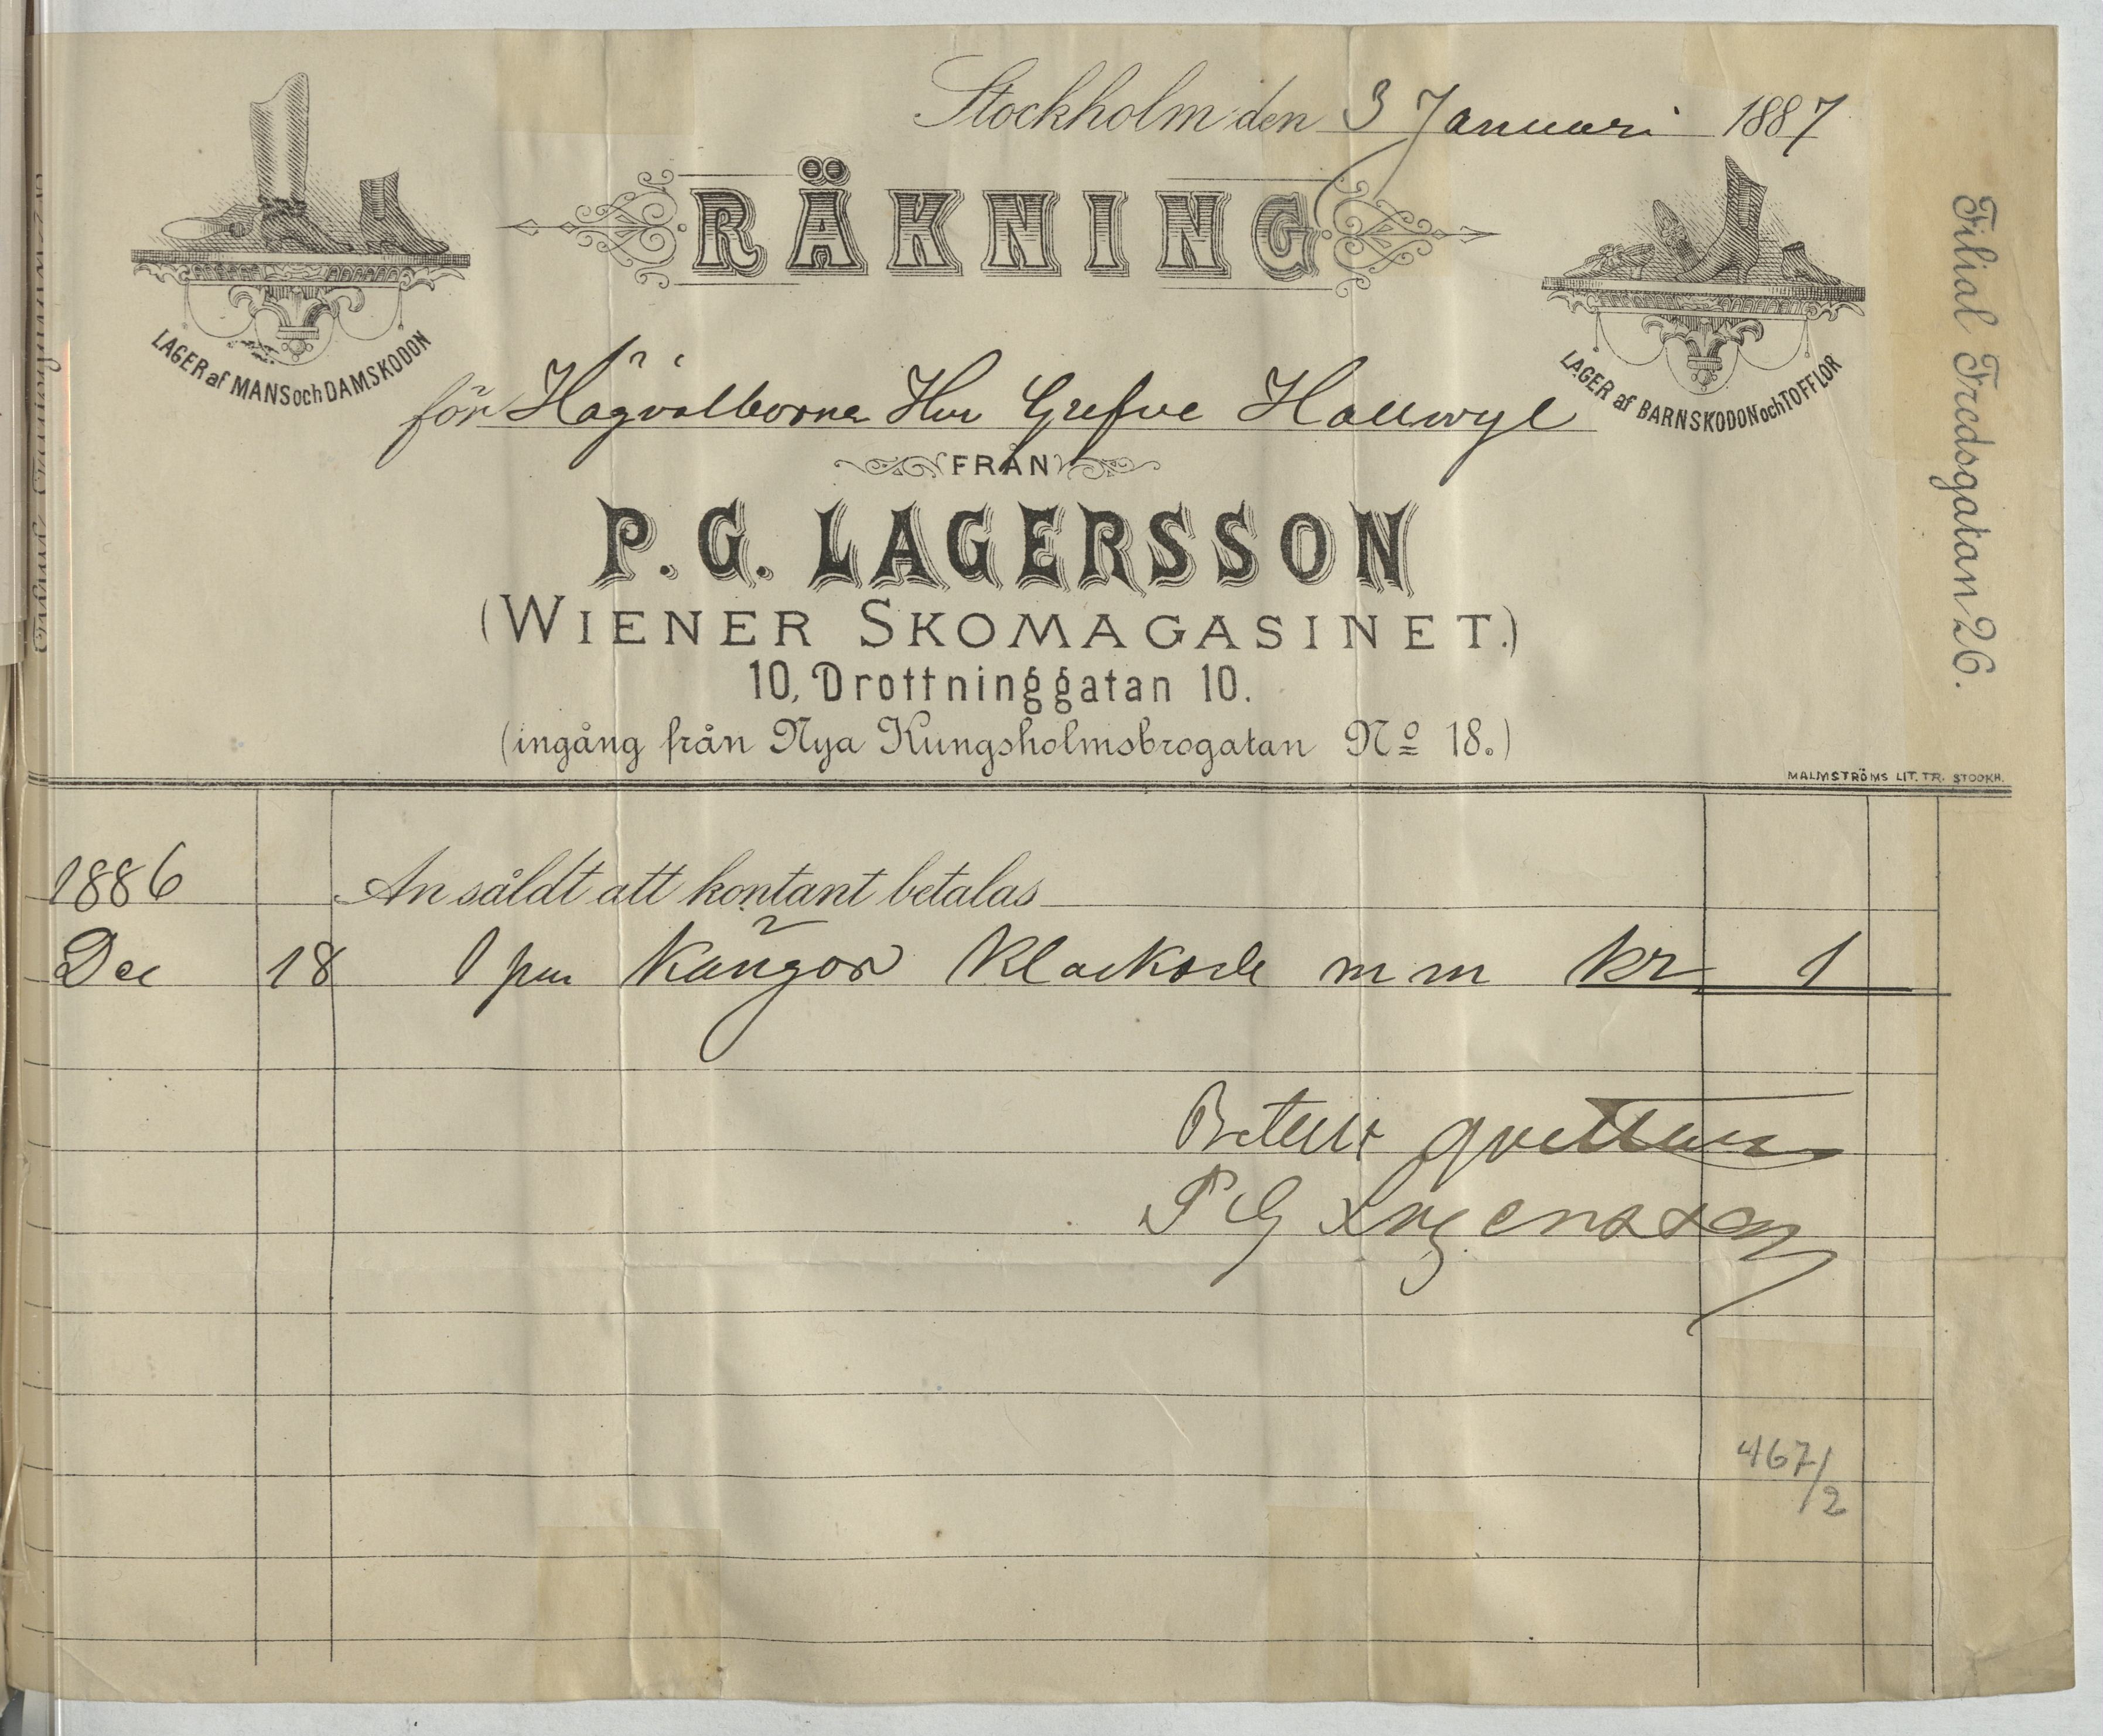 Stockholm den 3 Januari 1887
RÄKNING
LAGER af MANS och DAMSKODON
LAGER af BARNSKODON och TOFFLOR
för Högvälborne Herr Grefve Hallwyl
FRÅN
P. G. LAGERSSON
(WIENER SKOMAGASINET.)
10, Drottninggatan 10.
(ingång från Nya Kungsholmsbrogatan No 18.)
Filial Fredsgatan 26.
MALMSTRÖMS LIT. TR. STOCKH.
1886 An såldt att kontant betalas
Dec 18 1 par Kängor Klackade m m kr 1
Betalt qvitteras
P G Lagersson
467/2